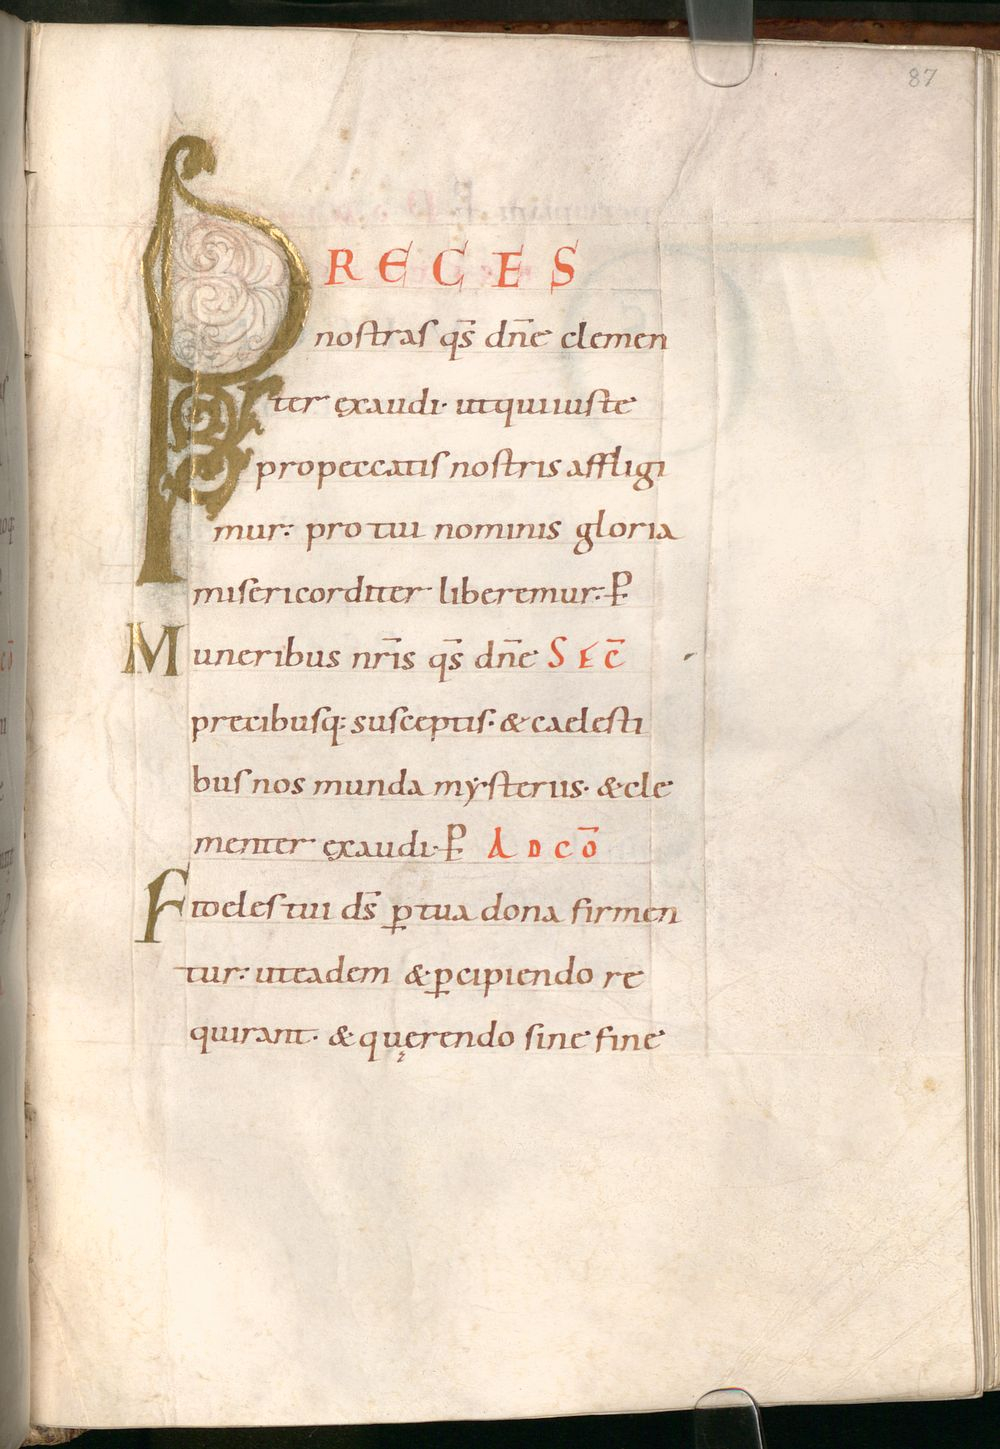 87
PRECES
nostras qs̄ dn̄e clemen
ter exaudi· utquiiuste
propeccatis nostris affligi
mur: pro tui nominis gloria
misericorditer liberemur: P̄
Muneribus nr̄is qs̄ dn̄e SEC̄
precibusq: susceptis· & caelesti
bus nos munda mysteriis· & cle
menter exaudi· P̄ ADCŌ
Fideles tui ds̄ ꝑ tua dona firmen
tur: uteadem & ꝑcipiendo re
quirant· & quęrendo sine fine